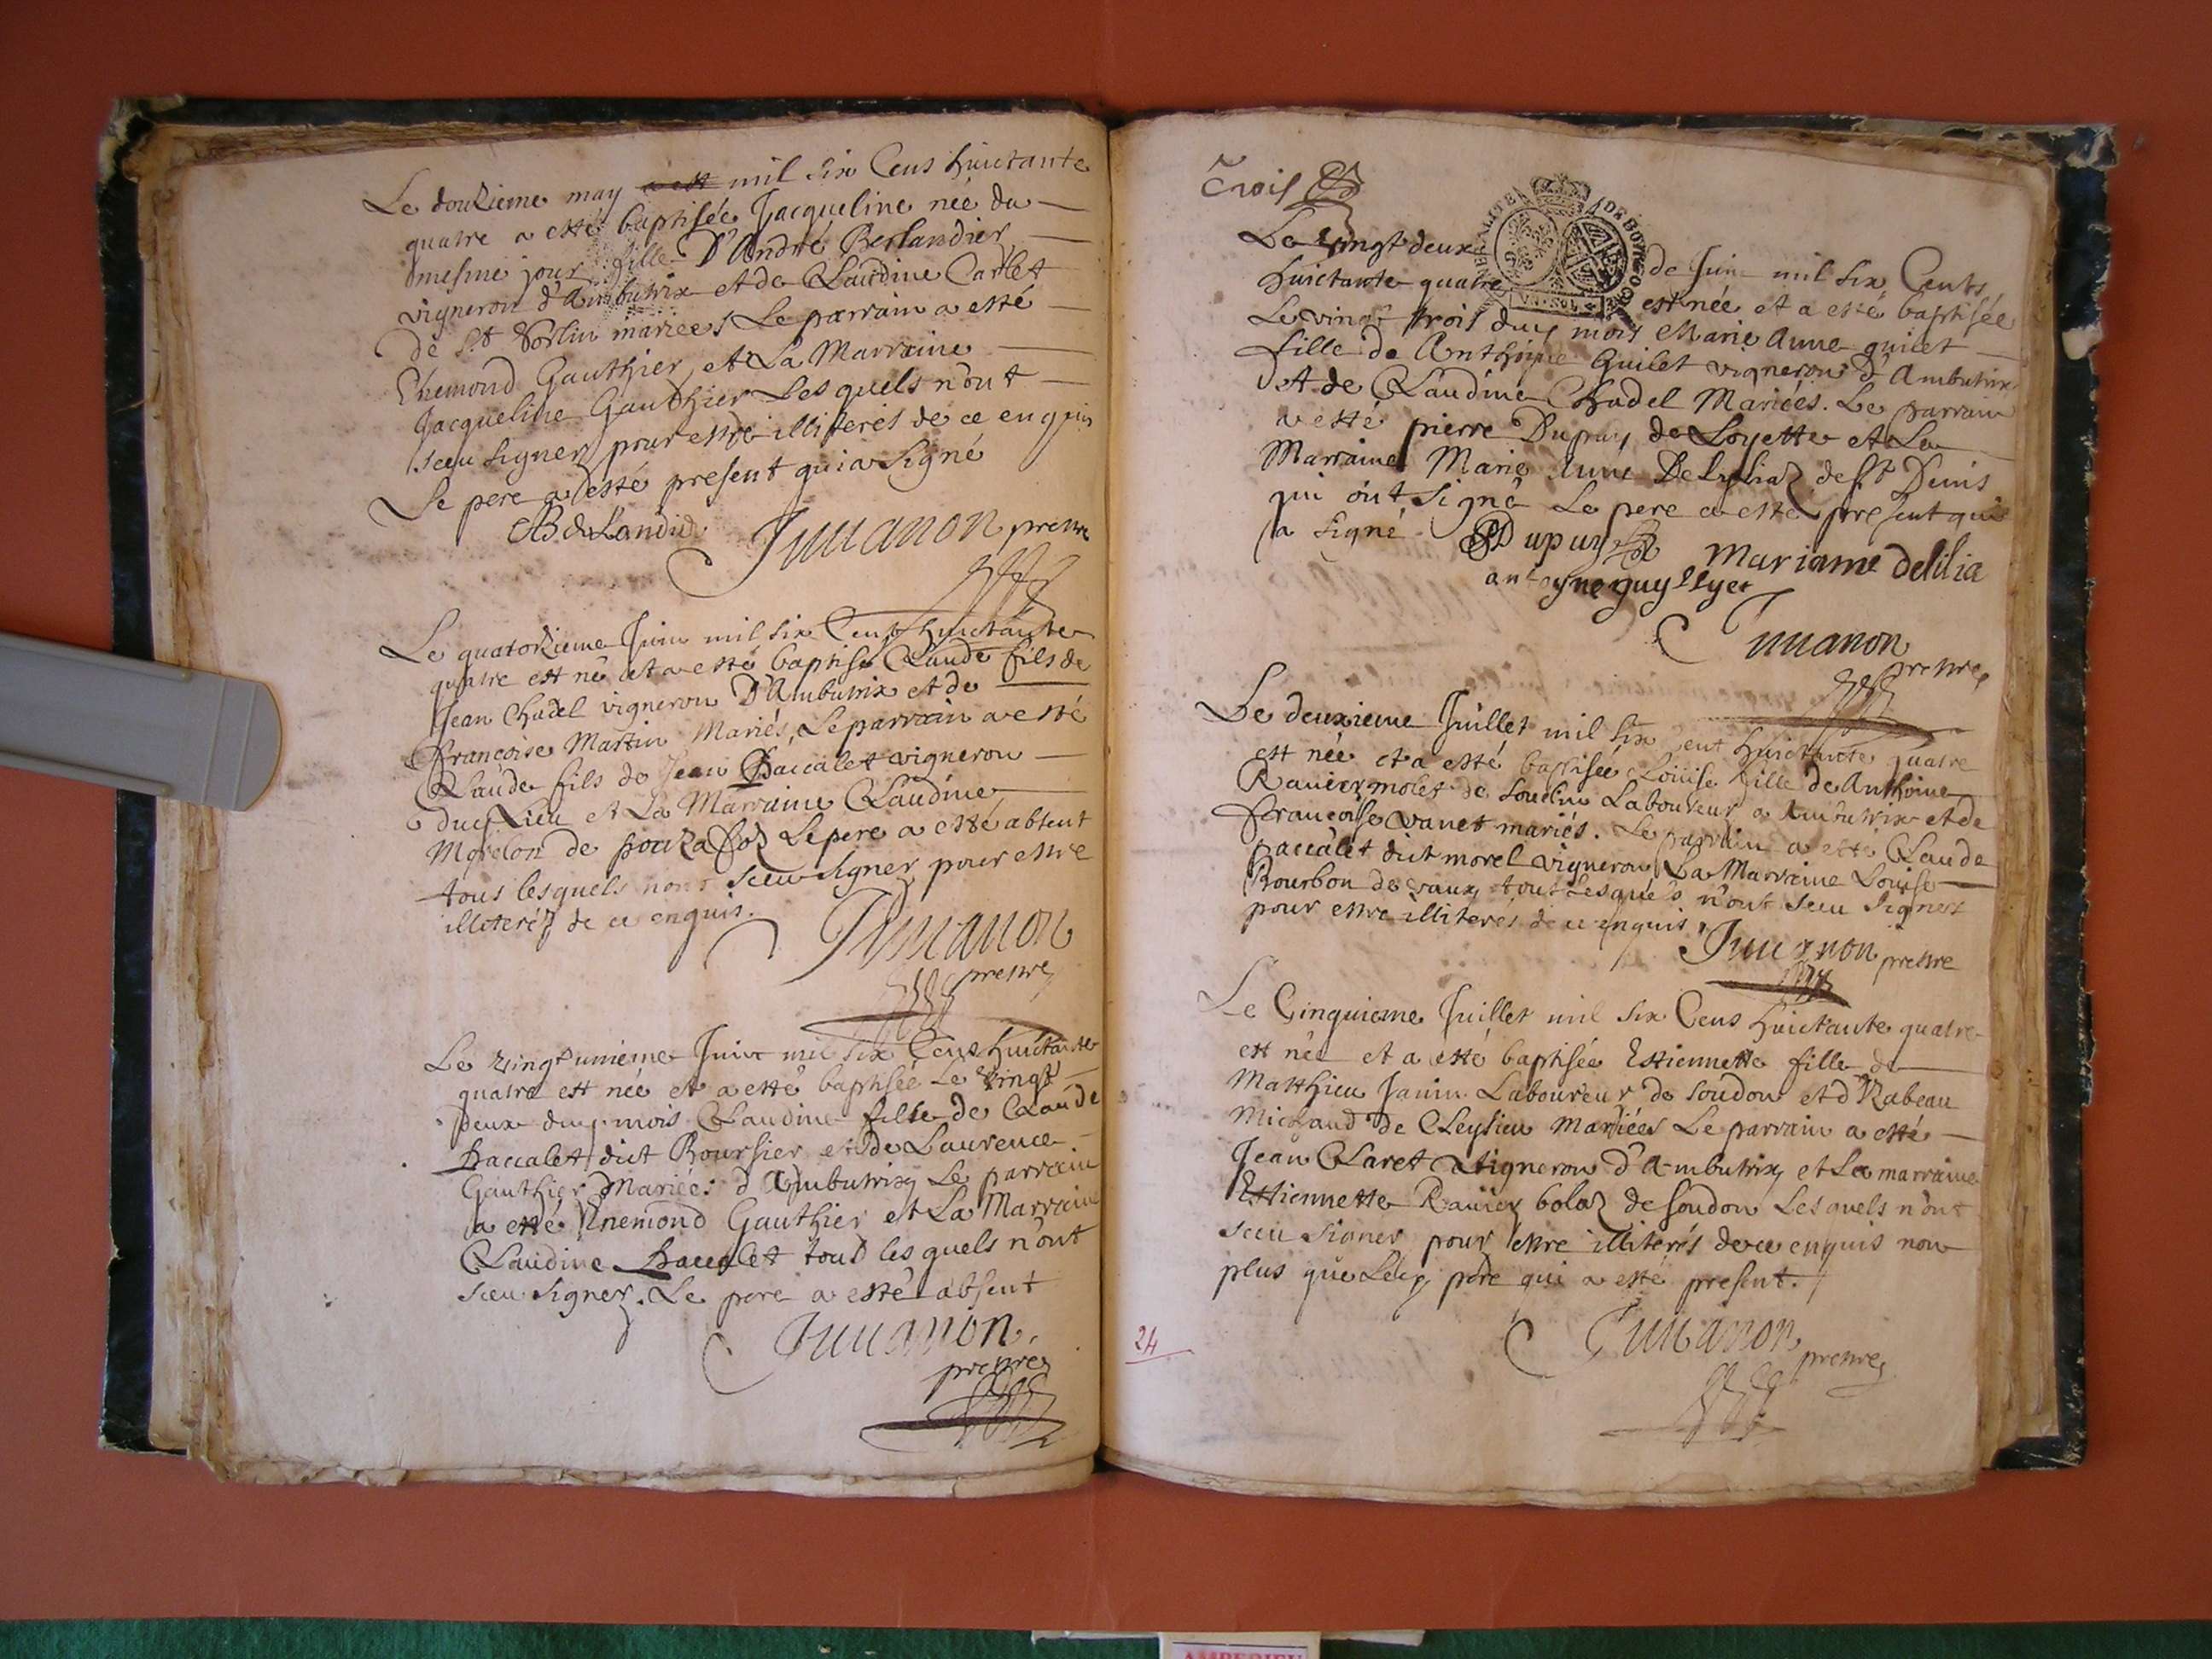 Le douzieme may a est mil six Cens huictante
quatre a esté baptisée Jacqueline née du
mesme jour fille D'André Berlandier
vigneron d'Ambutrix et de Claudine Carlet
de St Vorlin mariees Le parrain a esté
Enemond Gauthier, et La Marraine
Jacqueline Gauthier Lesquels n'ont
sceu signer pour estre illiterés de ce enquis
Le pere a esté present qui a signé
Juuanon prestre
Le quatorzieme Juin mil six Cens huictante
quatre est né et a esté baptisé Claude fils de
Jean Chadel vigneron D'Ambutrix et de
Françoise Martin Mariés, Le parrain a esté
Claude fils de Jean Baccalet vigneron
dud Lieu et La Marraine Claudine
Morelon de Le pere a esté absent
tous lesquels nont sceu signer pour estre
illiteréz de ce enquis.
Juuanon
prestre
Le vingt unieme Juin mil six Cens huictante
quatre est née et a esté baptisée Le vingt
deux dud mois Claudine fille de Claude
Baccalet dict Boursier et de Laurence
Gauthier Mariés d'Ambutrix Le parrain
a esté Enemond Gauthier et La Marraine
Claudine Baccalet tous lesquels n'ont
sceu signer. Le pere a esté absent
Juuanon.
prestre
Trois
GENERALITE DE BOURGOG
VN SOL
Le vingt deux de Juin mil six Cents
huictante quatre est née et a esté baptisée
Le vingt trois dud mois Marie Anne guilet
fille de Anthoine Guilet vigneron d'Ambutrix
et de Claudine Chadel Mariés. Le parrain
a esté pierre Dupuy de Loyette et La
Marraine Marie Anne de St Denis
qui ont signé Le pere a esté present qui
a signé. PDupuy Marianne delilia
antoyne guyllyet
Juuanon
prestre
Le deuxieme Juillet mil six Cent huictante quatre
est née et a esté baptisée Loüise fille de Anthoine
Ravier molet de Soudon Laboureur a Ambutrix et de
françoise vanet mariés. Le parrain a esté Claude
paccalet dict morel vigneron La Marraine Louise
Bourbon de vaux tout Lesquels n'ont sceu signer
pour estre illiterés de ce enquis
Juuanon prestre
Le Cinquieme Juillet mil six Cens huictante quatre
est née et a esté baptisée Estiennette fille de
Matthieu Janin Laboureur de Soudon et d'Izabeau
Michaud de Cleysieu Mariées Le parrain a esté
Jean Claret vigneron d'Ambutrix et La marraine
Estiennette Ravier bolaz de Soudon Lesquels n'ont
sceu signer pour estre illiterés de ce enquis non
plus que Led pere qui a esté present.
Juuanon prestre
24
AMBERIEU